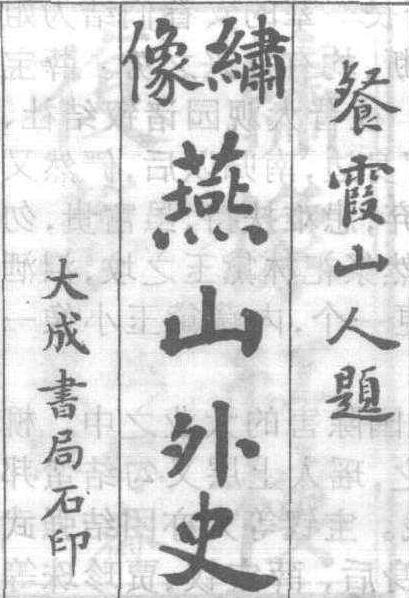 餐霞山人題
繡像
燕山外史
大成書局石印